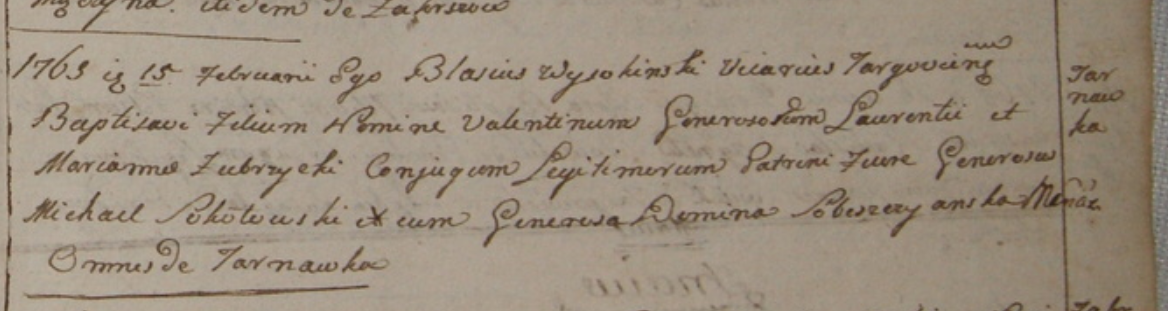 itidem de
1765 ig 15 Februarii Ego Blasius Wysokinski Vicarius
Baptisavi Filium Nomine Valentinum Generosorum Laurentii et
Mariannæ Zubrzycki Conjugum Legitimorum Patrini Fuere Generosus
Michael Sokołowski et cum Generosa Domina
Omnes de Tarnawka
Tar
naw
ka